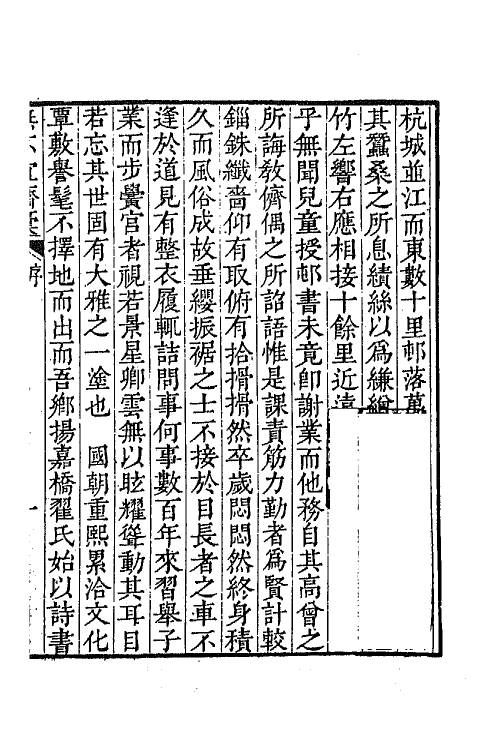 杭城並江而東數十里邨落萬
其蠶桑之所息績絲以為縑繒
竹左響右應相接十餘里近遠
乎無聞兒童授邨書未竟卽謝業而他務自其高曾之
所誨敎儕偶之所詔語惟是課責筋力勤者為賢計較
錙銖纖嗇仰有取俯有拾搰搰然卒歲悶悶然終身積
久而風俗成故垂纓振裾之士不接於目長者之車不
逢於道見有整衣履輒詰問事何事數百年來習舉子
業而步黌宮者視若景星卿雲無以眩耀聳動其耳目
若忘其世固有大雅之一塗也　國朝重熙累洽文化
覃敷譽髦不擇地而出而吾鄉揚嘉橋翟氏始以詩書
無不宜齋　序　一